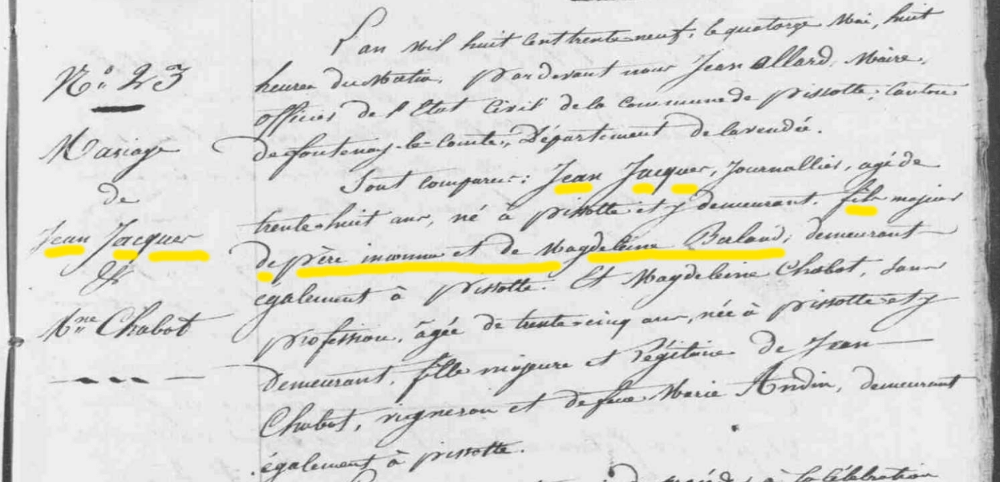 N.o 23
Mariage
de
Jean Jacques
&
M.ne Chabot
L'an Mil huit cent trente neuf, le quatorze Mai, huit
heures du Matin, par devant nous Jean Allard, Maire,
officier de l'Etat Civil de la Commune de pissotte, Canton
de fontenay-le-comte, Département de la vendée.
Sont comparus: Jean Jacques, Journallier, agé de
trente huit ans, né à pissotte et y demeurant, fils majeur
de père inconnu et de Magdeleine Berland, demeurant
également à pissotte. Et Magdeleine Chabot, sans
profession, âgée de trente cinq ans, née à pissotte et y
demeurant, fille majeure et légitime de Jean
Chabot, vigneron et de feue Marie Andin, demeurant
également à pissotte.
à la célébration